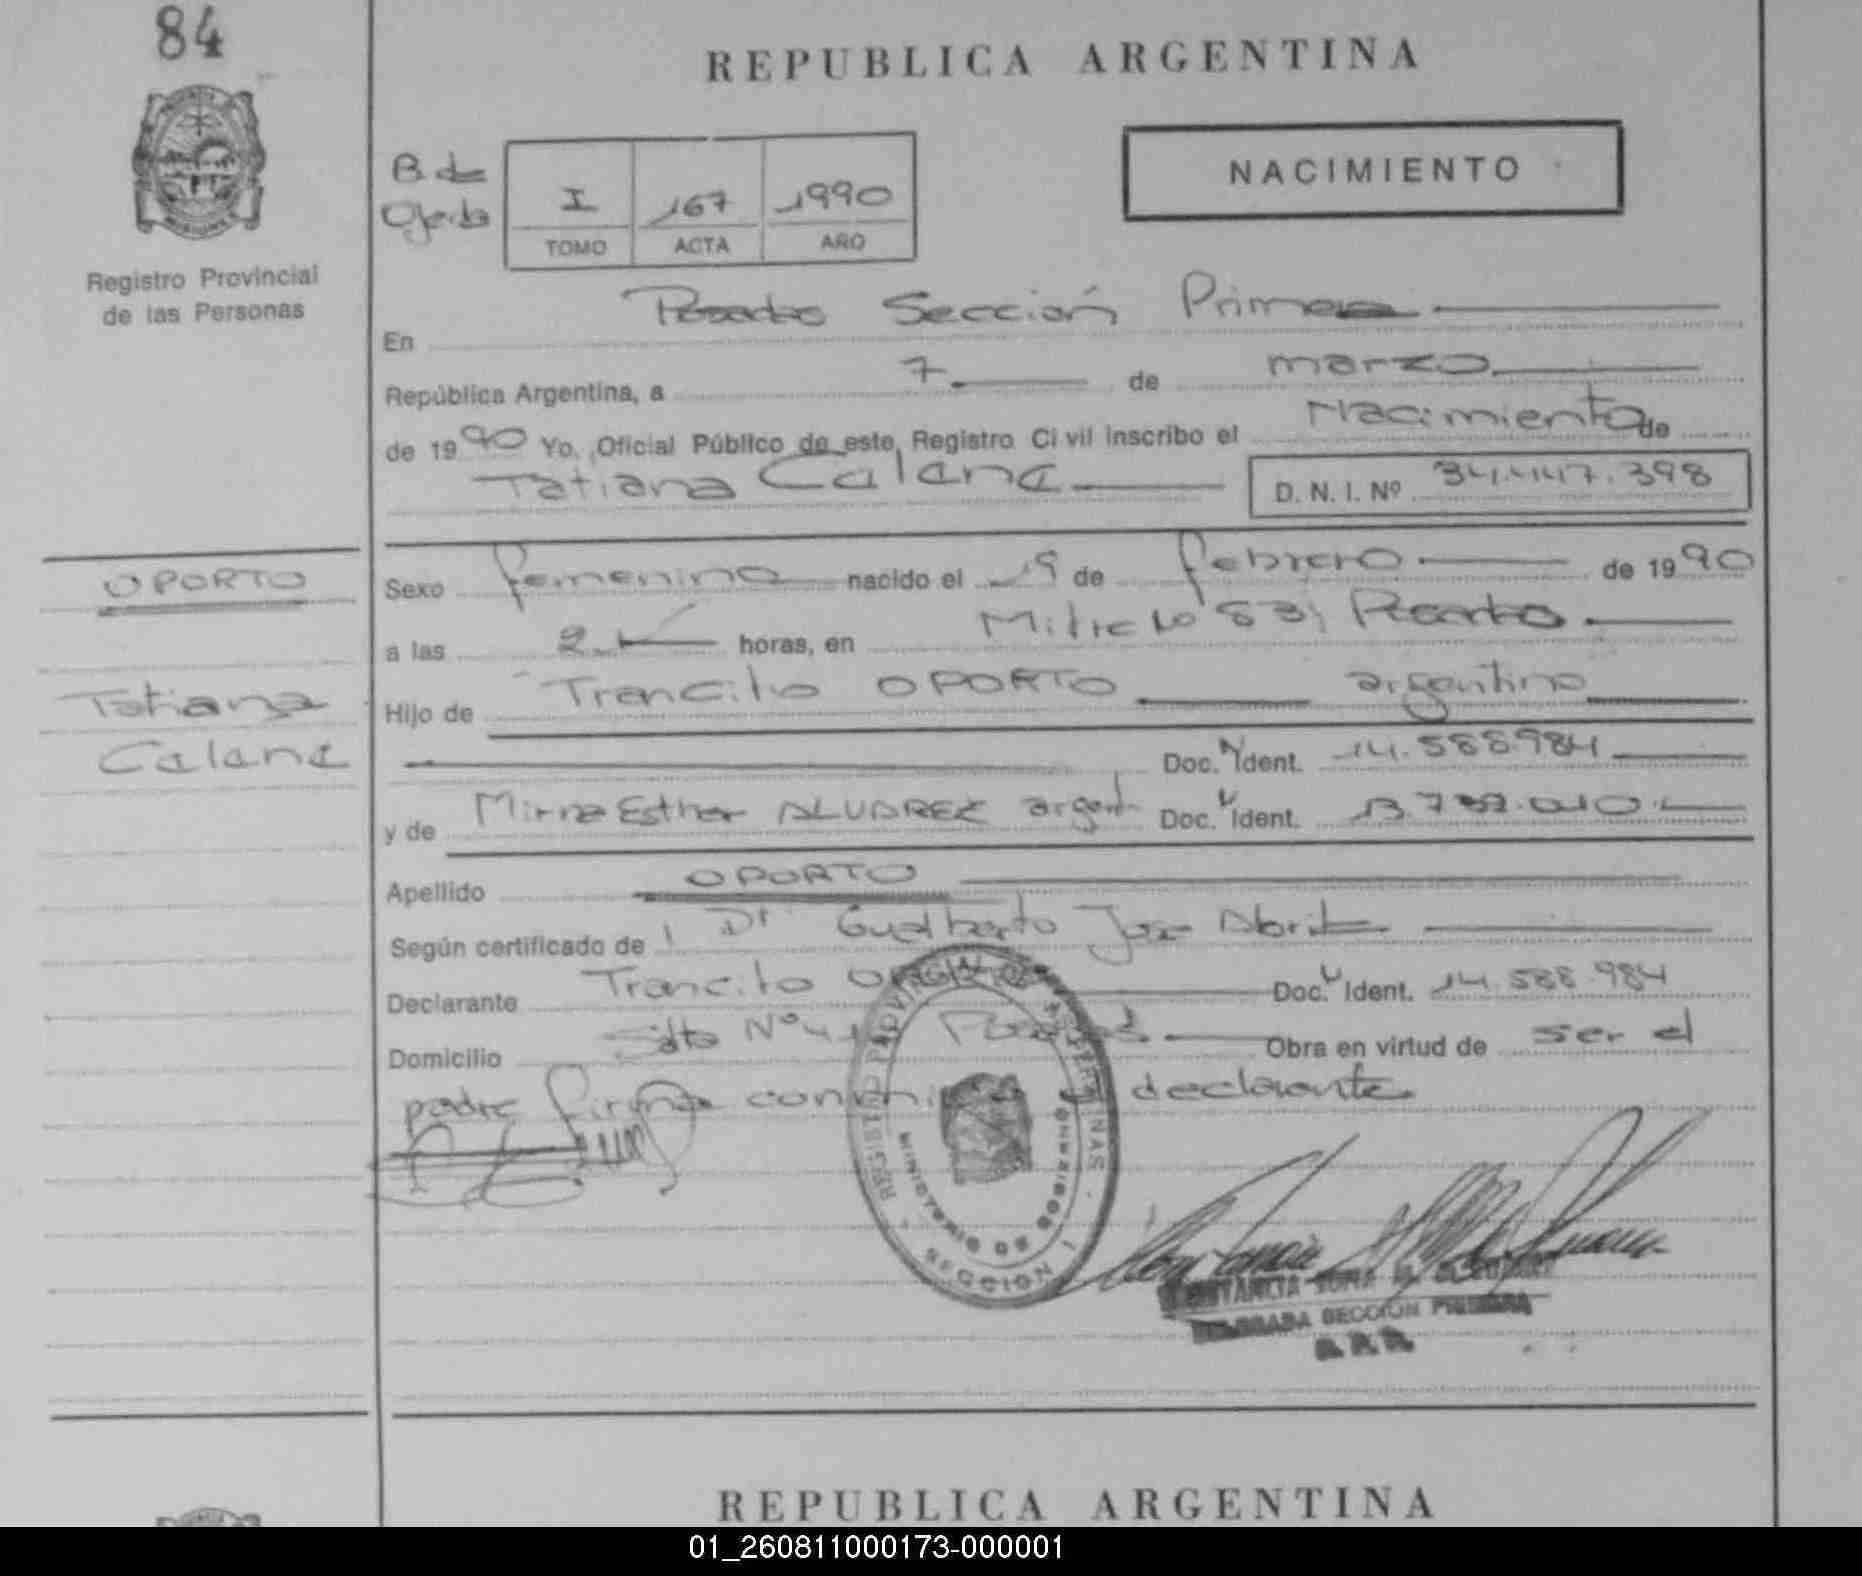 84
REPUBLICA ARGENTINA
NACIMIENTO
B de
I 167 1990
TOMO ACTA AÑO
Registro Provincial
de las Personas
En Posadas Sección Primera
República Argentina, a 7 de marzo
de 1990 Yo, Oficial Público de este Registro Civil inscribo el Nacimiento de
Tatiana Calana D. N. I. Nº 34.447.398
OPORTO
Tatiana
Calana
Sexo femenino nacido el 19 de febrero de 1990
a las 2 horas, en Mitre Posadas
Hijo de Trancito OPORTO argentino
Doc. Ident. 14.588.984
y de Mirna Esther ALVAREZ argent Doc. Ident.
Apellido OPORTO
Según certificado de Dr Gualberto José
Declarante Trancito Doc. Ident. 14.588.984
Domicilio Nº Posadas Obra en virtud de ser el
padre firma conmigo el declarante
REGISTRO PROVINCIAL DE LAS PERSONAS
MINISTERIO DE GOBIERNO
SECCION I
DELEGADA SECCION PRIMERA
REPUBLICA ARGENTINA
01_260811000173-000001